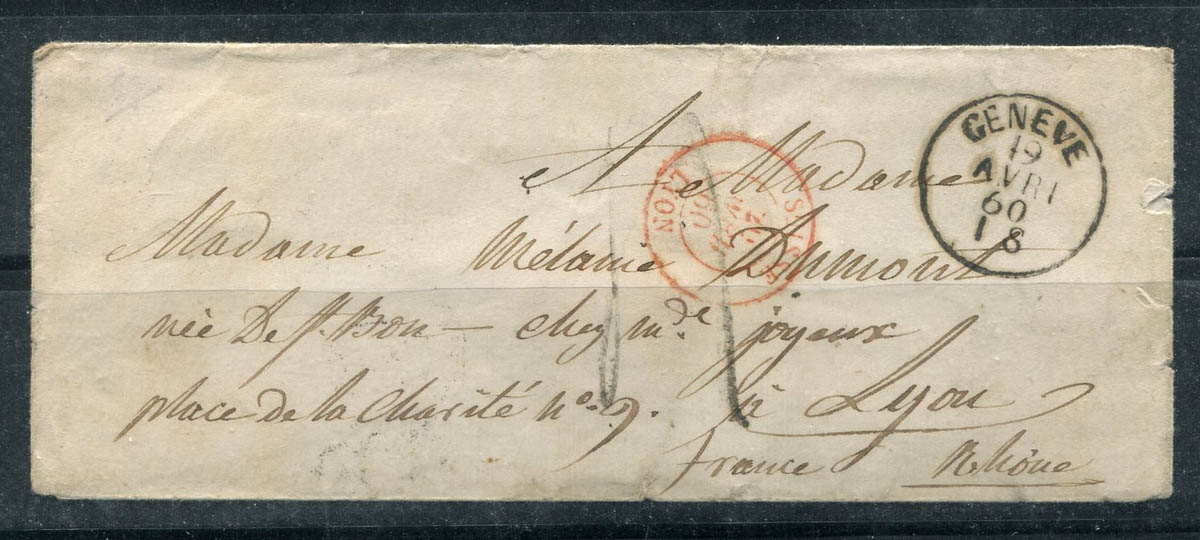 GENEVE
19
AVRI
60
18
SUISSE
LYON
A Madame
Madame Mélanie Dumont
née De St. Bon — chez mde. joyeux
place de la Charité no. 9. à Lyon
france Rhône